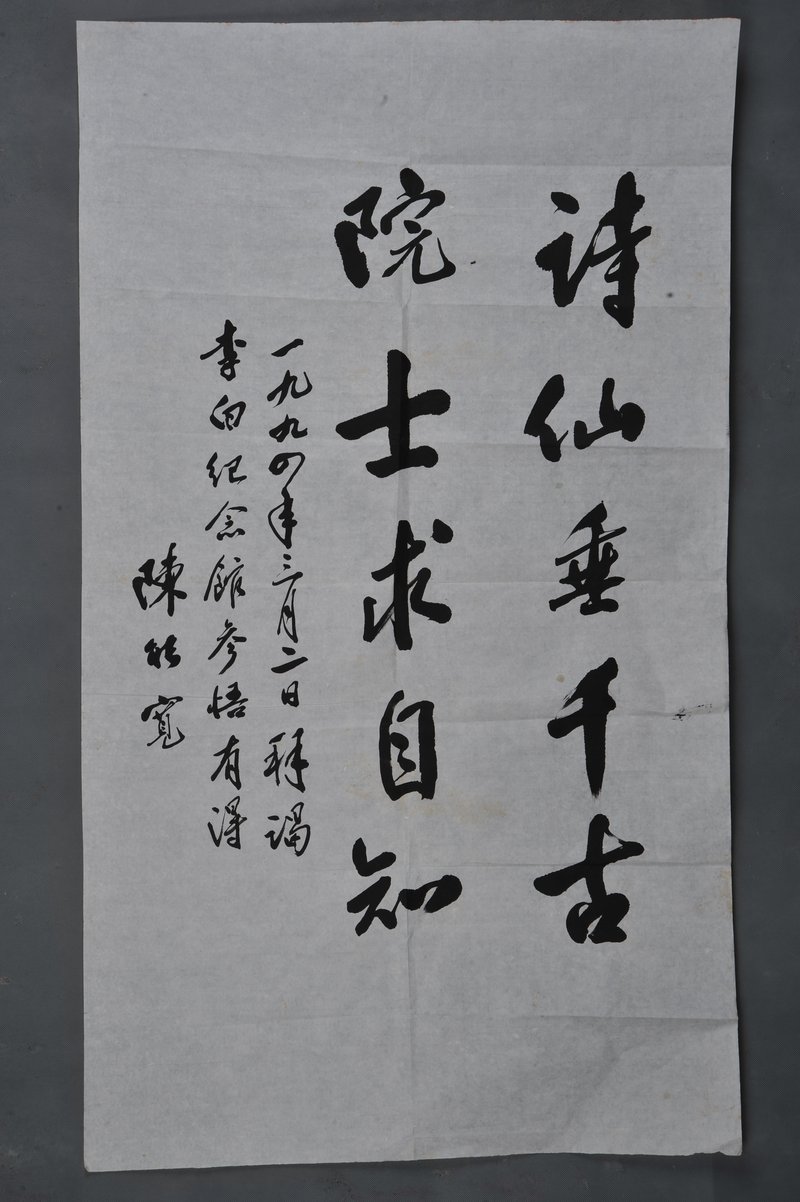 詩仙垂千古
院士求自知
一九九四年三月二日拜謁
李白纪念館參悟有得
陳能寬